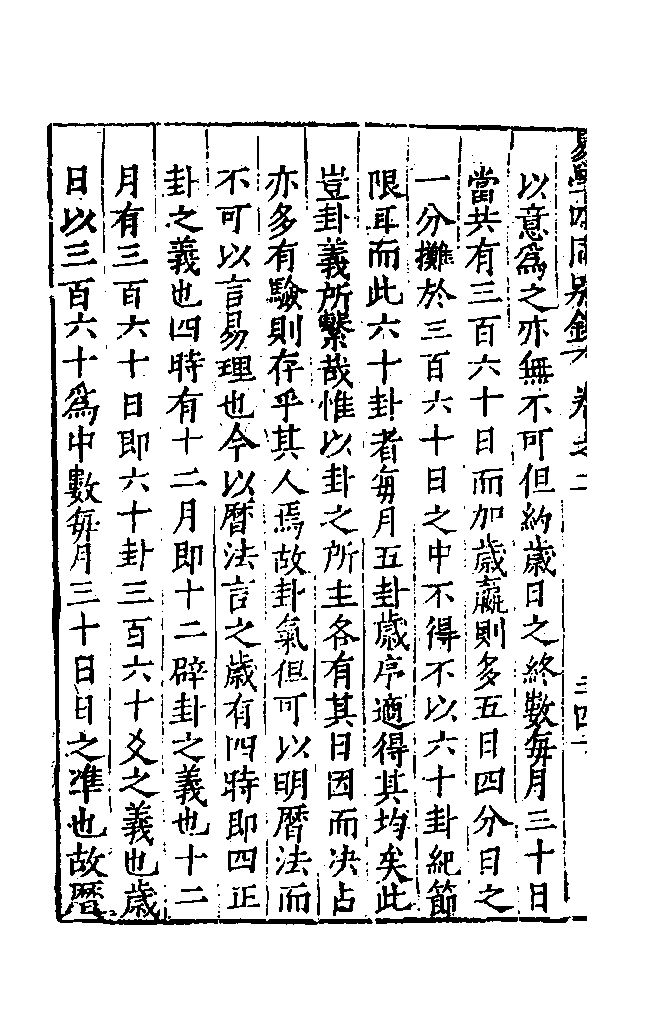 易學啓蒙別錄 卷之二
以意爲之亦無不可但約歲日之終數每月三十日
當共有三百六十日而加歲羸則多五日四分日之
一分攤於三百六十日之中不得不以六十卦紀節
限耳而此六十卦者每月五卦歲序適得其均矣此
豈卦義所繫哉惟以卦之所主各有其日因而决占
亦多有驗則存乎其人焉故卦氣但可以明曆法而
不可以言易理也今以曆法言之歲有四時即四正
卦之義也四時有十二月即十二辟卦之義也十二
月有三百六十日即六十卦三百六十爻之義也歲
日以三百六十爲中數每月三十日日之準也故曆